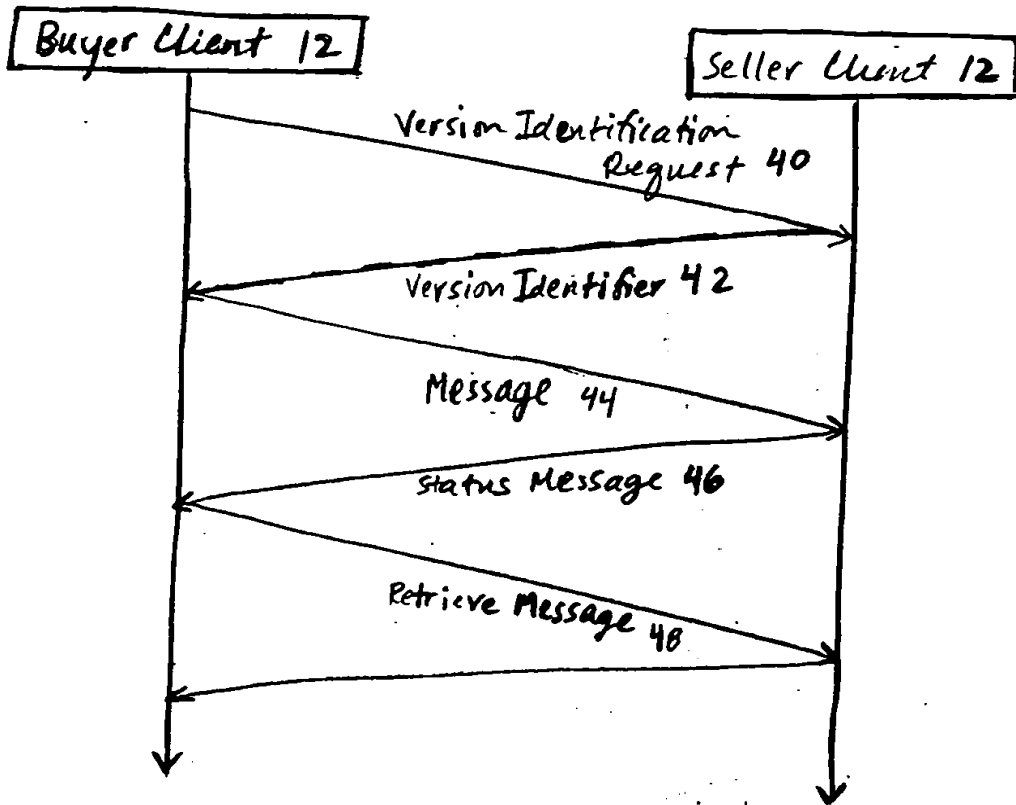 Buyer Client 12
Seller Client 12
Version Identification
Request 40
Version Identifier 42
Message 44
Status Message 46
Retrieve Message 48